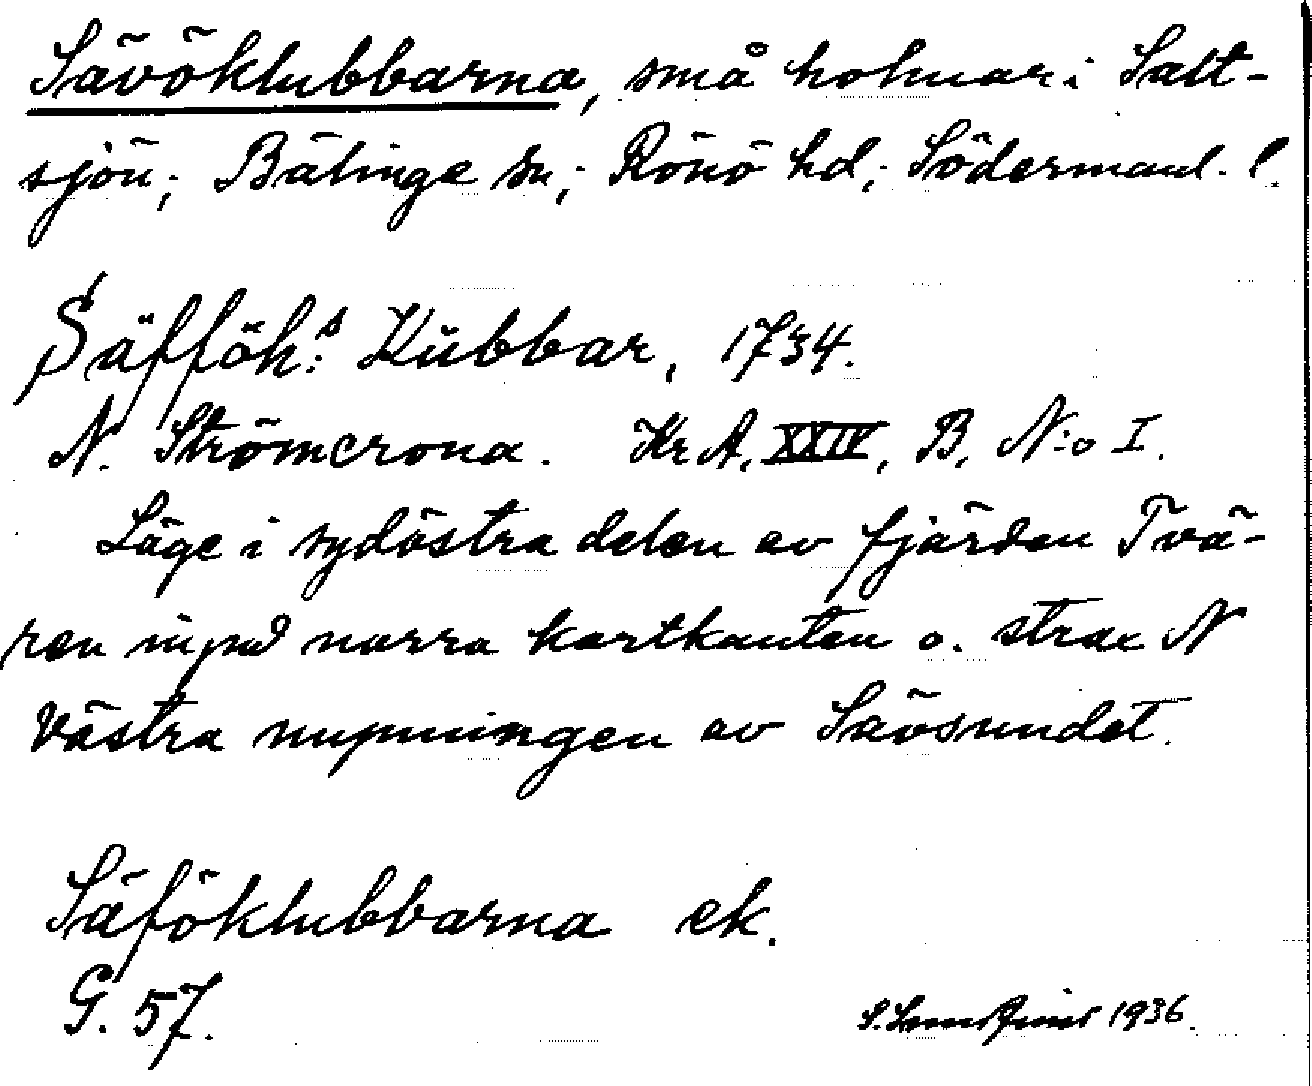 Sävöklubbarna, små holmar i Salt-
sjön; Bälinge sn; Rönö hd; Södermanl. l.
Säfföh:s Kubbar, 1734.
N. Strömcrona. KrA, XXIV, B, N:o I.
Läge i sydöstra delen av fjärden Tvä-
ren invid norra kartkanten o. strax N
västra mynningen av Sävösundet.
Säföklubbarna ek.
G. 57.
S. 1936.